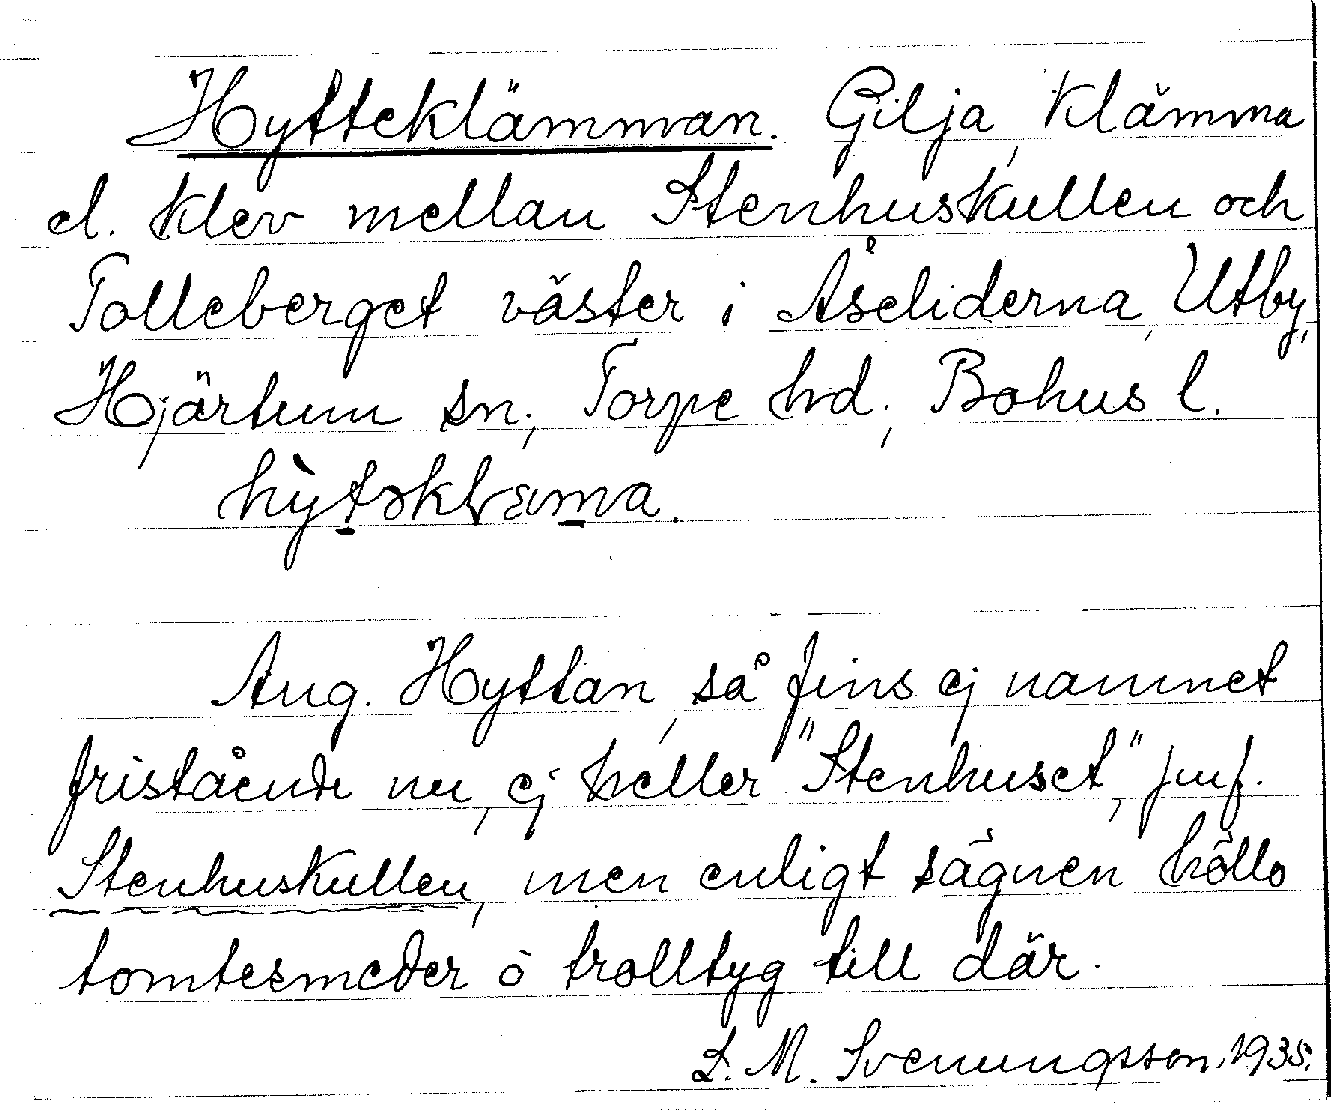 Hytteklämman. Gilja, klämma
el. klev mellan Stenhuskullen och
Tolleberget väster i Åseliderna, Utby,
Hjärtum sn, Torpe hd, Bohus l.
Ang. Hyttan, så fins ej namnet
fristående nu, ej heller "Stenhuset", jmf.
Stenhuskullen, men enligt sägnen höllo
tomtesmeder o trolltyg till där.
L. M. Svenungsson. 1935.